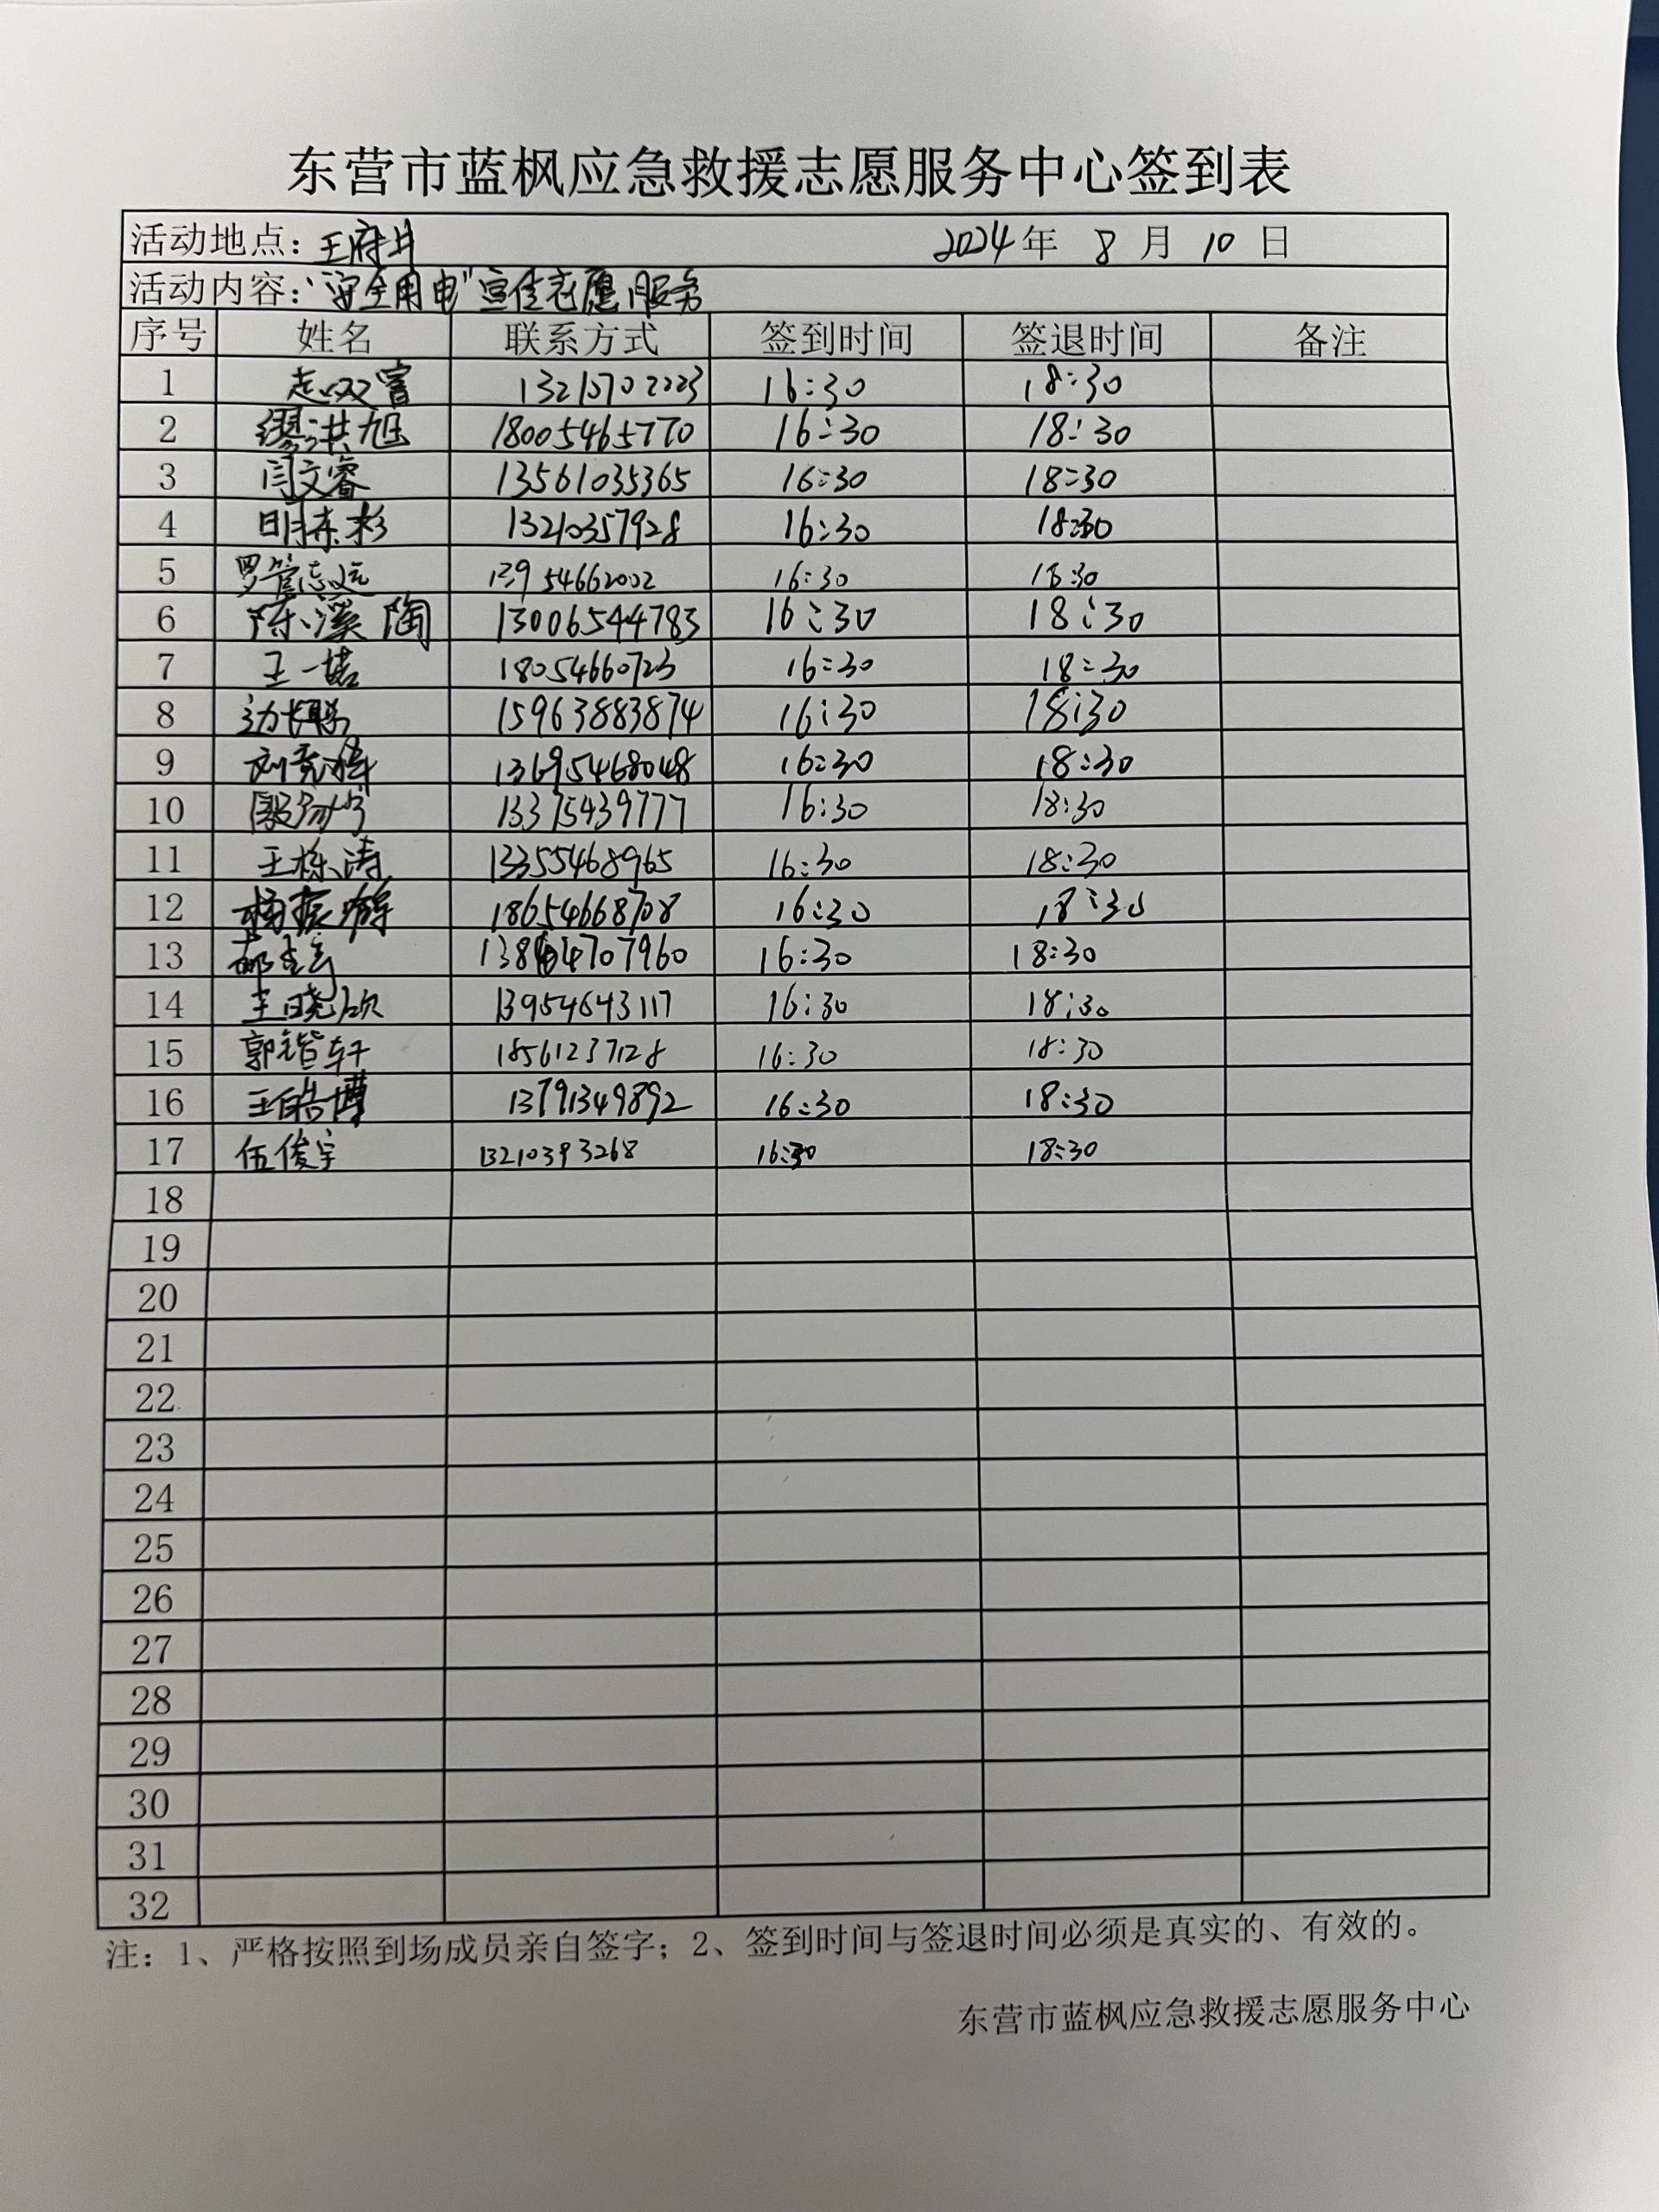 东营市蓝枫应急救援志愿服务中心签到表
活动地点：王府井 2024年 8月 10日
活动内容："安全用电"宣传志愿服务
序号 姓名 联系方式 签到时间 签退时间 备注
1 赵双富 13210702223 16:30 18:30
2 缪洪旭 18005465770 16:30 18:30
3 闫文睿 13561035365 16:30 18:30
4 明东杉 13210357928 16:30 18:30
5 罗管志远 13954662002 16:30 18:30
6 陈溪陶 13006544783 16:30 18:30
7 王一喆 18054660723 16:30 18:30
8 15963883874 16:30 18:30
9 13695468048 16:30 18:30
10 13375439777 16:30 18:30
11 王栎涛 13355468965 16:30 18:30
12 18654668708 16:30 18:30
13 13864707960 16:30 18:30
14 王晓欣 13954643117 16:30 18:30
15 郭锴轩 18561237128 16:30 18:30
16 王皓博 13791349892 16:30 18:30
17 伍俊宇 13210393268 16:30 18:30
18
19
20
21
22
23
24
25
26
27
28
29
30
31
32
注：1、严格按照到场成员亲自签字；2、签到时间与签退时间必须是真实的、有效的。
东营市蓝枫应急救援志愿服务中心